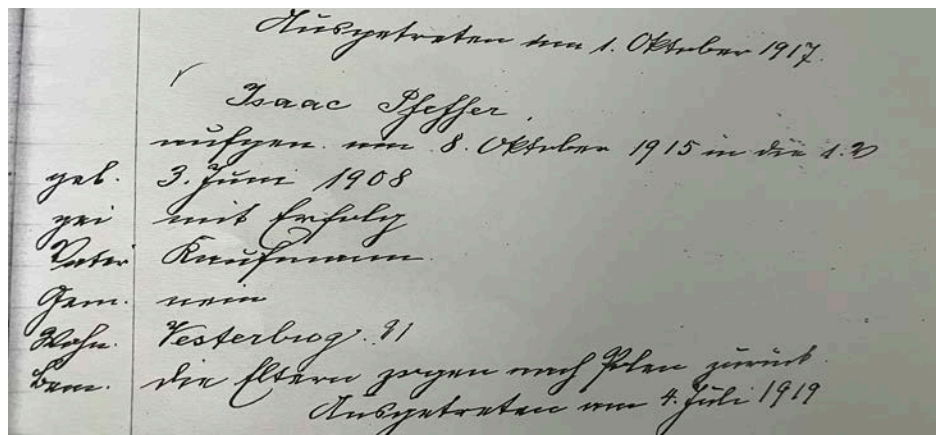 Ausgetreten am 1. Oktober 1917.
Isaac Pfeffer.
aufgen. am 8. Oktober 1915 in die 1.
geb. 3. Juni 1908
mit Erfolg
Vater Kaufmann.
Gem. nein
Wohn. Vesterbrog. 91
Bem. die Eltern zogen nach Polen zurück.
Ausgetreten am 4. Juli 1919